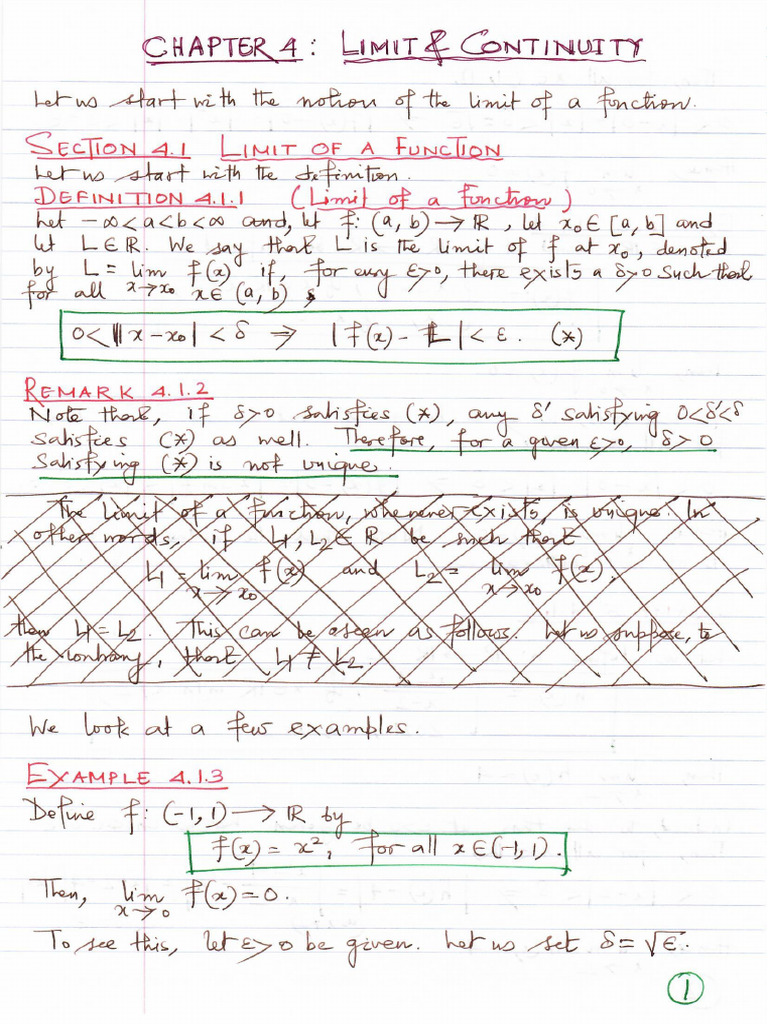 CHAPTER 4: LIMIT & CONTINUITY
Let us start with the notion of the limit of a function.
SECTION 4.1 LIMIT OF A FUNCTION
Let us start with the definition.
DEFINITION 4.1.1 (Limit of a function)
Let -∞<a<b<∞ and, let f: (a, b) → ℝ, let x₀ ∈ [a, b] and
let L ∈ ℝ. We say that L is the limit of f at x₀, denoted
by L = lim f(x) if, for every ε>0, there exists a δ>0 such that
for all x→x₀ x ∈ (a, b)
0 < |x - x₀| < δ ⇒ |f(x) - L| < ε. (*)
REMARK 4.1.2
Note that, if δ>0 satisfies (*), any δ' satisfying 0<δ'<δ
satisfies (*) as well. Therefore, for a given ε>0, δ>0
satisfying (*) is not unique.
The limit of a function, whenever exists, is unique. In
other words, if L₁, L₂ ∈ ℝ be such that
L₁ = lim f(x) and L₂ = lim f(x),
x→x₀ x→x₀
then L₁ = L₂. This can be seen as follows. Let us suppose, to
the contrary, that L₁ ≠ L₂.
We look at a few examples.
EXAMPLE 4.1.3
Define f: (-1, 1) → ℝ by
f(x) = x², for all x ∈ (-1, 1).
Then, lim f(x) = 0.
x→0
To see this, let ε>0 be given. Let us set δ = √ε.
1